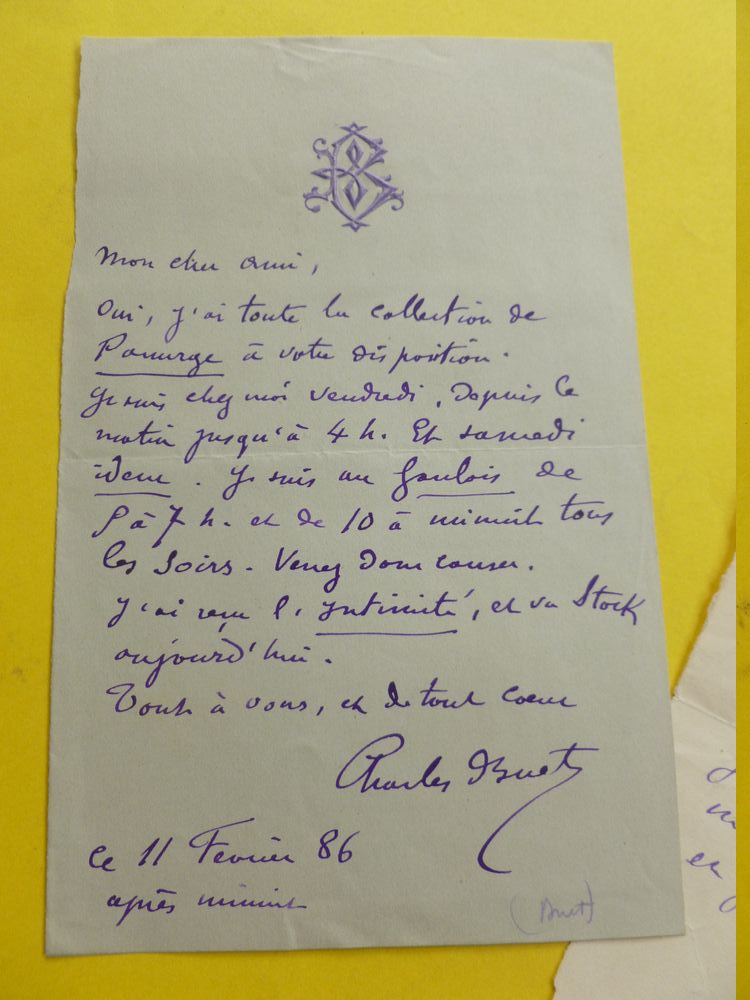 B
Mon cher ami,
Oui, j'ai toute la collection de
Panurge à votre disposition.
Je suis chez moi vendredi, depuis le
matin jusqu'à 4 h. Et samedi
idem. Je suis au Gaulois de
5 à 7 h. et de 10 à minuit tous
les soirs. Venez donc causer.
J'ai reçu l'Intimité, et vu Stock
aujourd'hui.
Tout à vous, et de tout coeur
Charles Buet
Ce 11 Février 86
après minuit
(Buet)
en